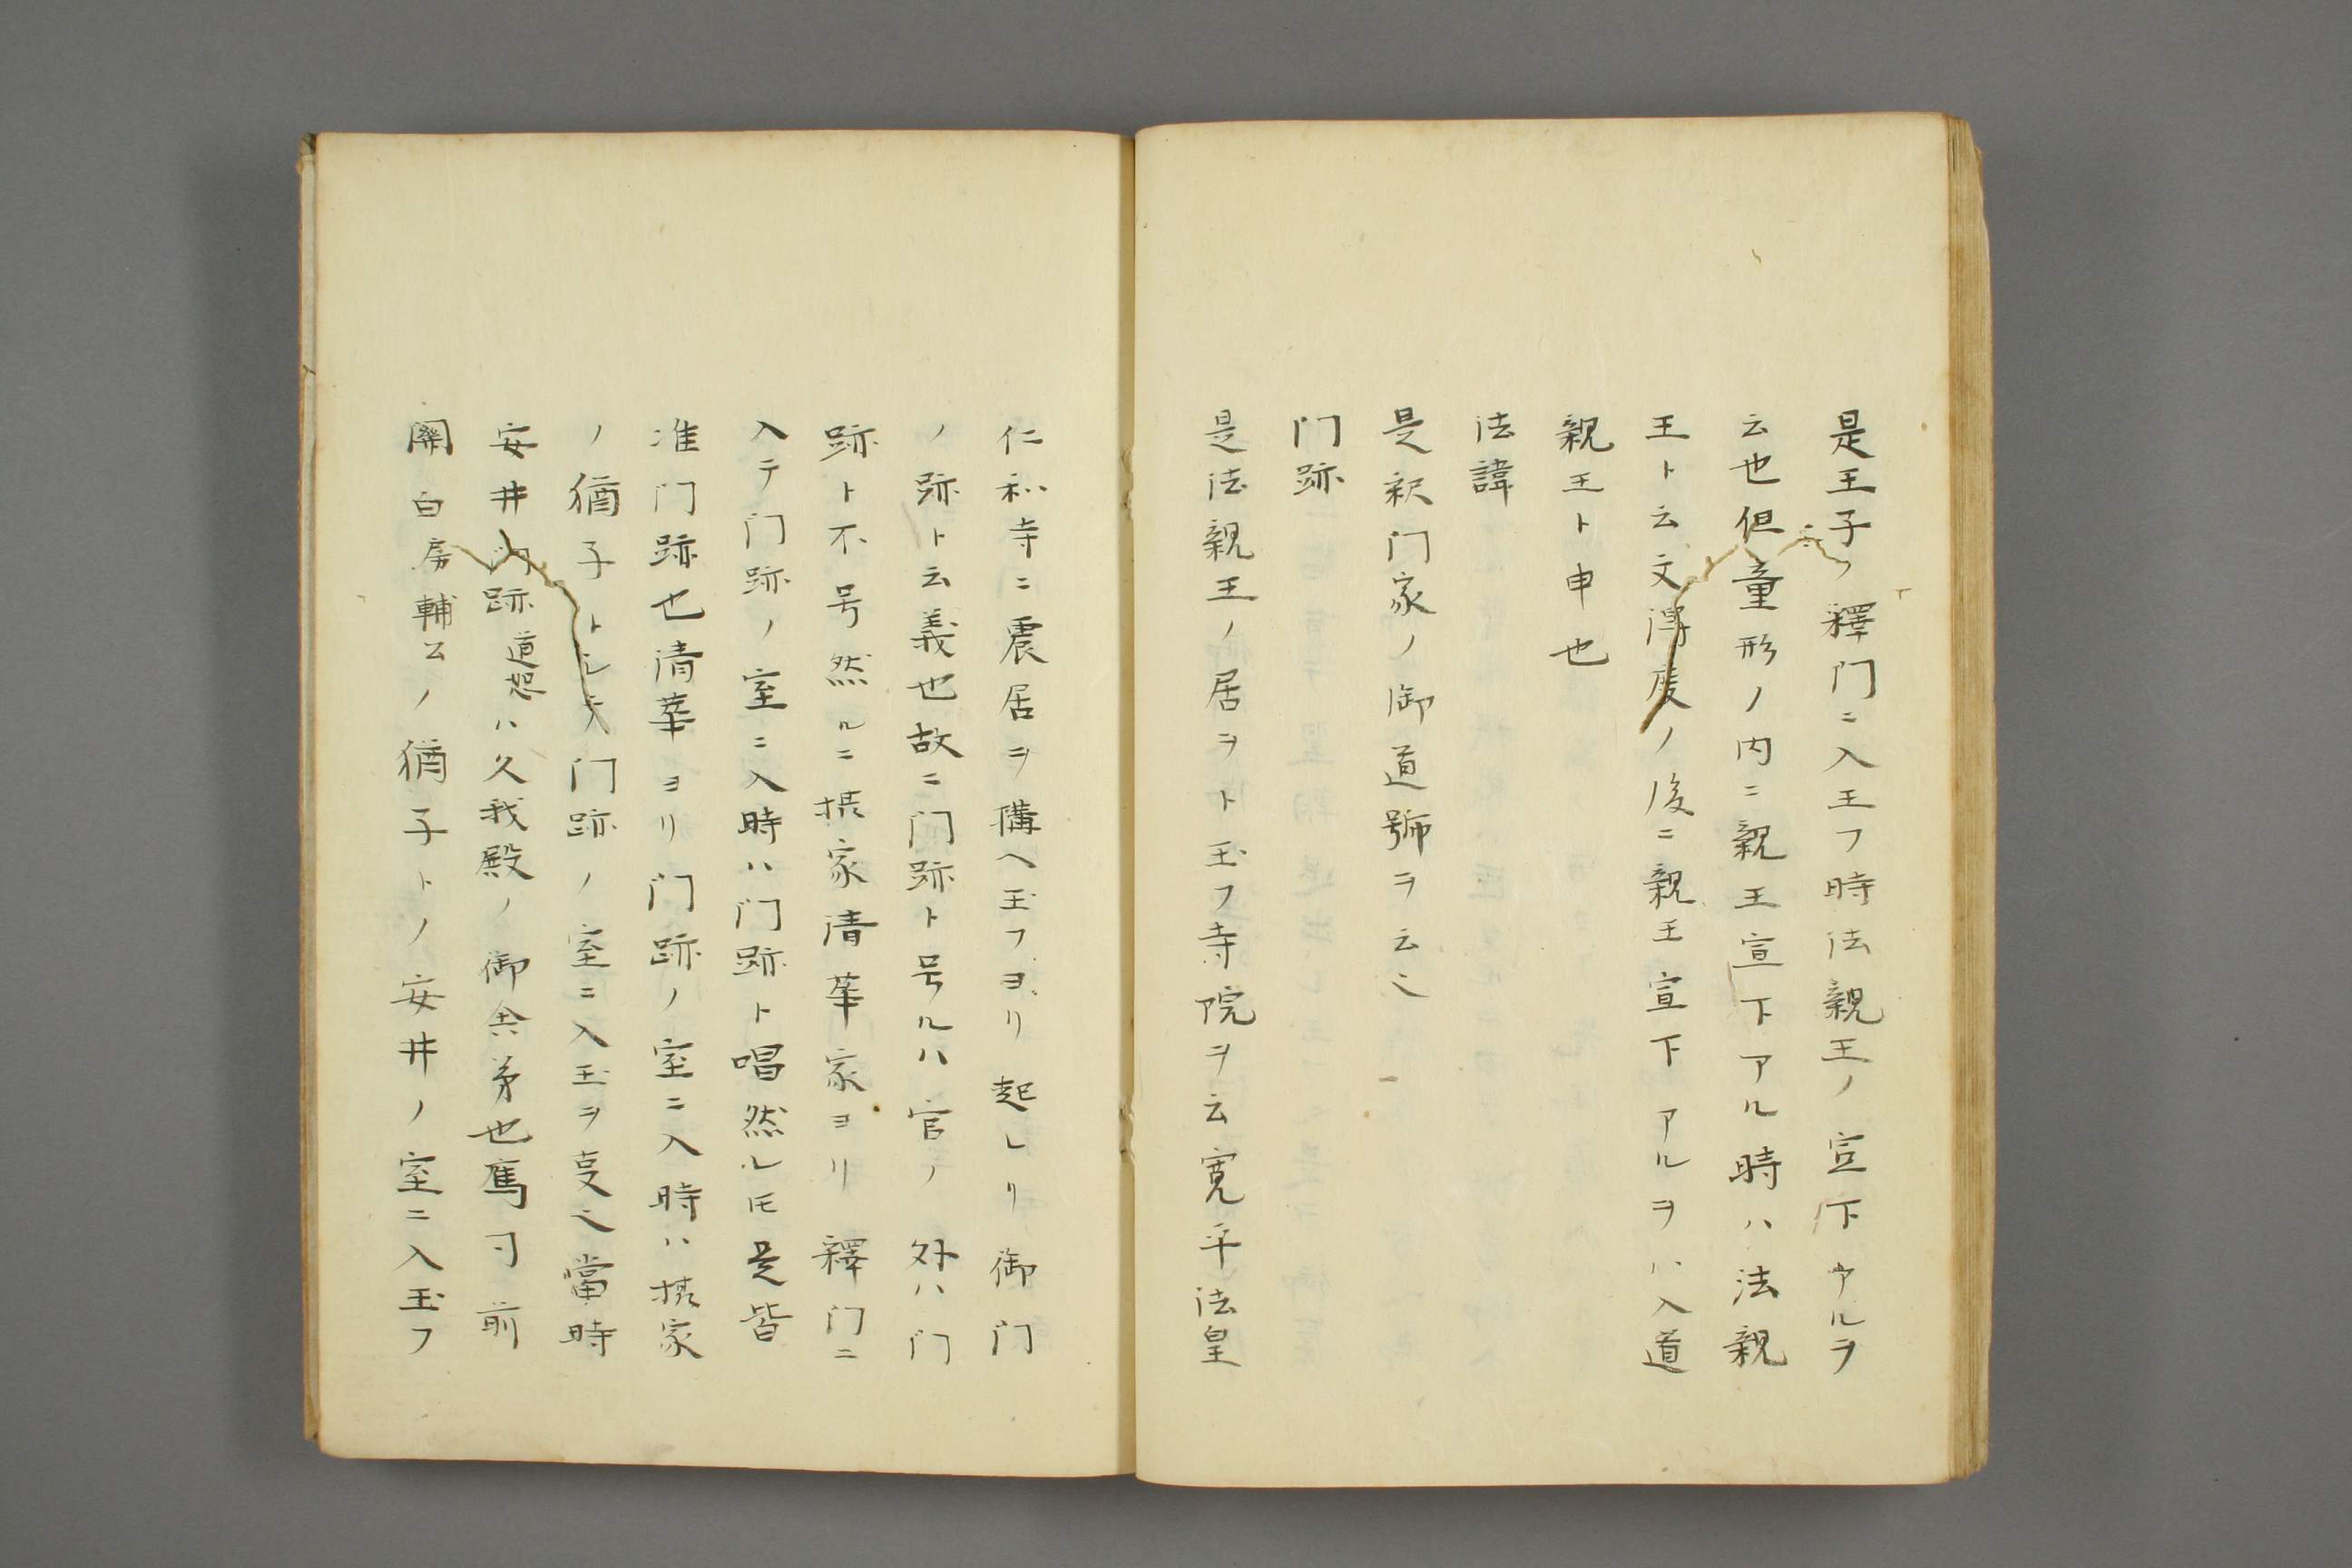 是王子ノ釋門ニ入玉フ時法親王ノ宣下アルヲ
云也但童形ノ内ニ親王宣下アル時ハ法親
王ト云文得度ノ後ニ親王宣下アルヲハ入道
親王ト申也
法諱
是釈门家ノ御道號ヲ云也
门跡
是法親王ノ居ヲト玉フ寺院ヲ云寛平法皇
仁和寺ニ震居ヲ構ヘ玉フヨリ起レリ御门
ノ跡ト云義也故ニ门跡ト号ルハ官ノ外ハ门
跡ト不号然ルニ摂家清華家ヨリ釋门ニ
入テ门跡ノ室ニ入時ハ门跡ト唱然ルモ是皆
准门跡也清華ヨリ门跡ノ室ニ入時ハ摂家
ノ猶子トシテ门跡ノ室ニ入玉ヲ㕝也當時
安井门跡道恕ハ久我殿ノ御舎弟也鷹司前
関白房輔公ノ猶子トノ安井ノ室ニ入玉フ